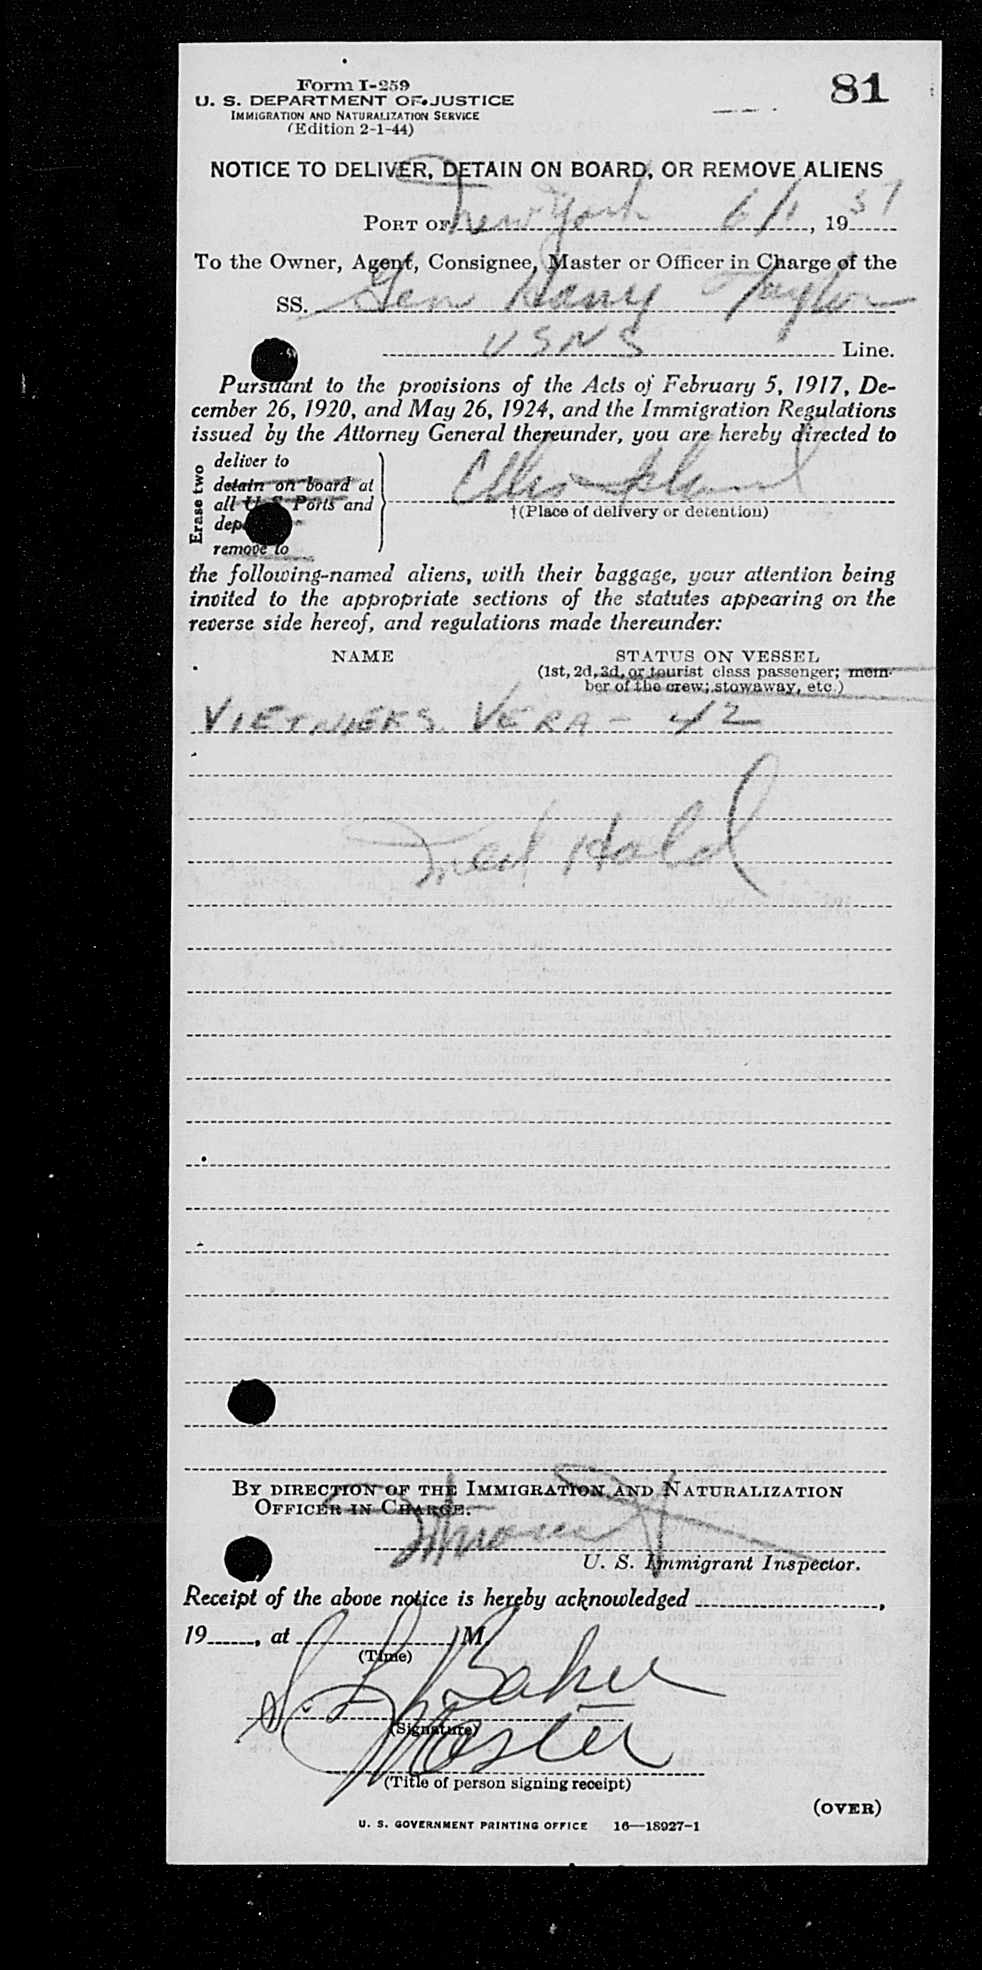 Form I-259
81
U. S. DEPARTMENT OF JUSTICE
IMMIGRATION AND NATURALIZATION SERVICE
(Edition 2-1-44)
NOTICE TO DELIVER, DETAIN ON BOARD, OR REMOVE ALIENS
PORT OF New York 6/1, 1951
To the Owner, Agent, Consignee, Master or Officer in Charge of the
SS. Gen Harry Taylor
USNS Line.
Pursuant to the provisions of the Acts of February 5, 1917, De-
cember 26, 1920, and May 26, 1924, and the Immigration Regulations
issued by the Attorney General thereunder, you are hereby directed to
Erase two
deliver to
detain on board at
all U S Ports and
dep
remove to
Ellis Island
†(Place of delivery or detention)
the following-named aliens, with their baggage, your attention being
invited to the appropriate sections of the statutes appearing on the
reverse side hereof, and regulations made thereunder:
NAME
STATUS ON VESSEL
(1st, 2d, 3d, or tourist class passenger; mem-
ber of the crew; stowaway, etc.)
VIETNIEKS. VERA - 42
Med Hold
BY DIRECTION OF THE IMMIGRATION AND NATURALIZATION
OFFICER IN CHARGE.
U. S. Immigrant Inspector.
Receipt of the above notice is hereby acknowledged ,
19 , at M.
(Time)
Baker
(Signature)
Master
(Title of person signing receipt)
(OVER)
U. S. GOVERNMENT PRINTING OFFICE 16—18927-1